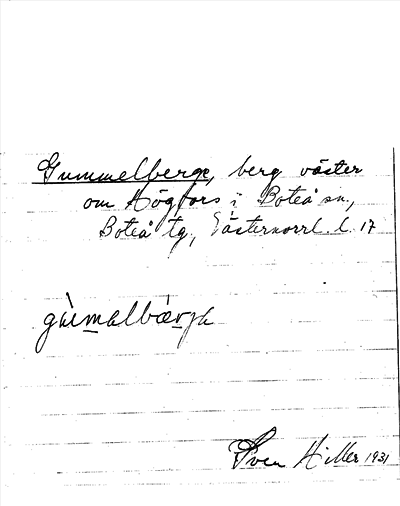 Gummelberge, berg väster
om Högfors i Boteå sn,
Boteå tg, Västernorrl. l. 17
Sven Hiller 1931